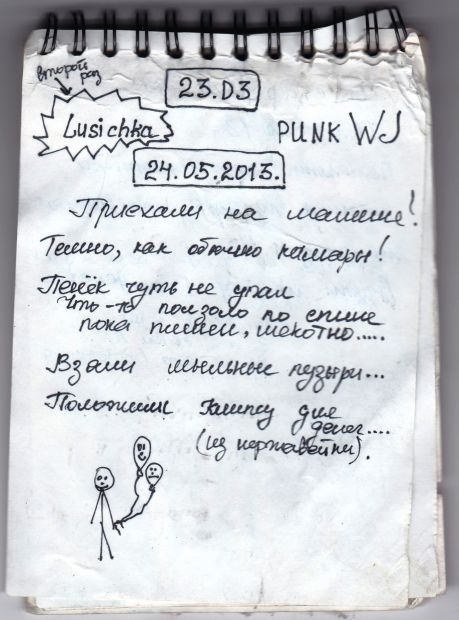 второй раз
23.D3
Lusichka
PUNK WJ
24.05.2013.
Приехали на машине!
Темно, как обычно камары!
Пенёк чуть не упал
Что-то ползоло по спине
пока пишем, щекотно.....
Взяли мыльные пузыри...
Положили для
денег....
(из нержавейки).